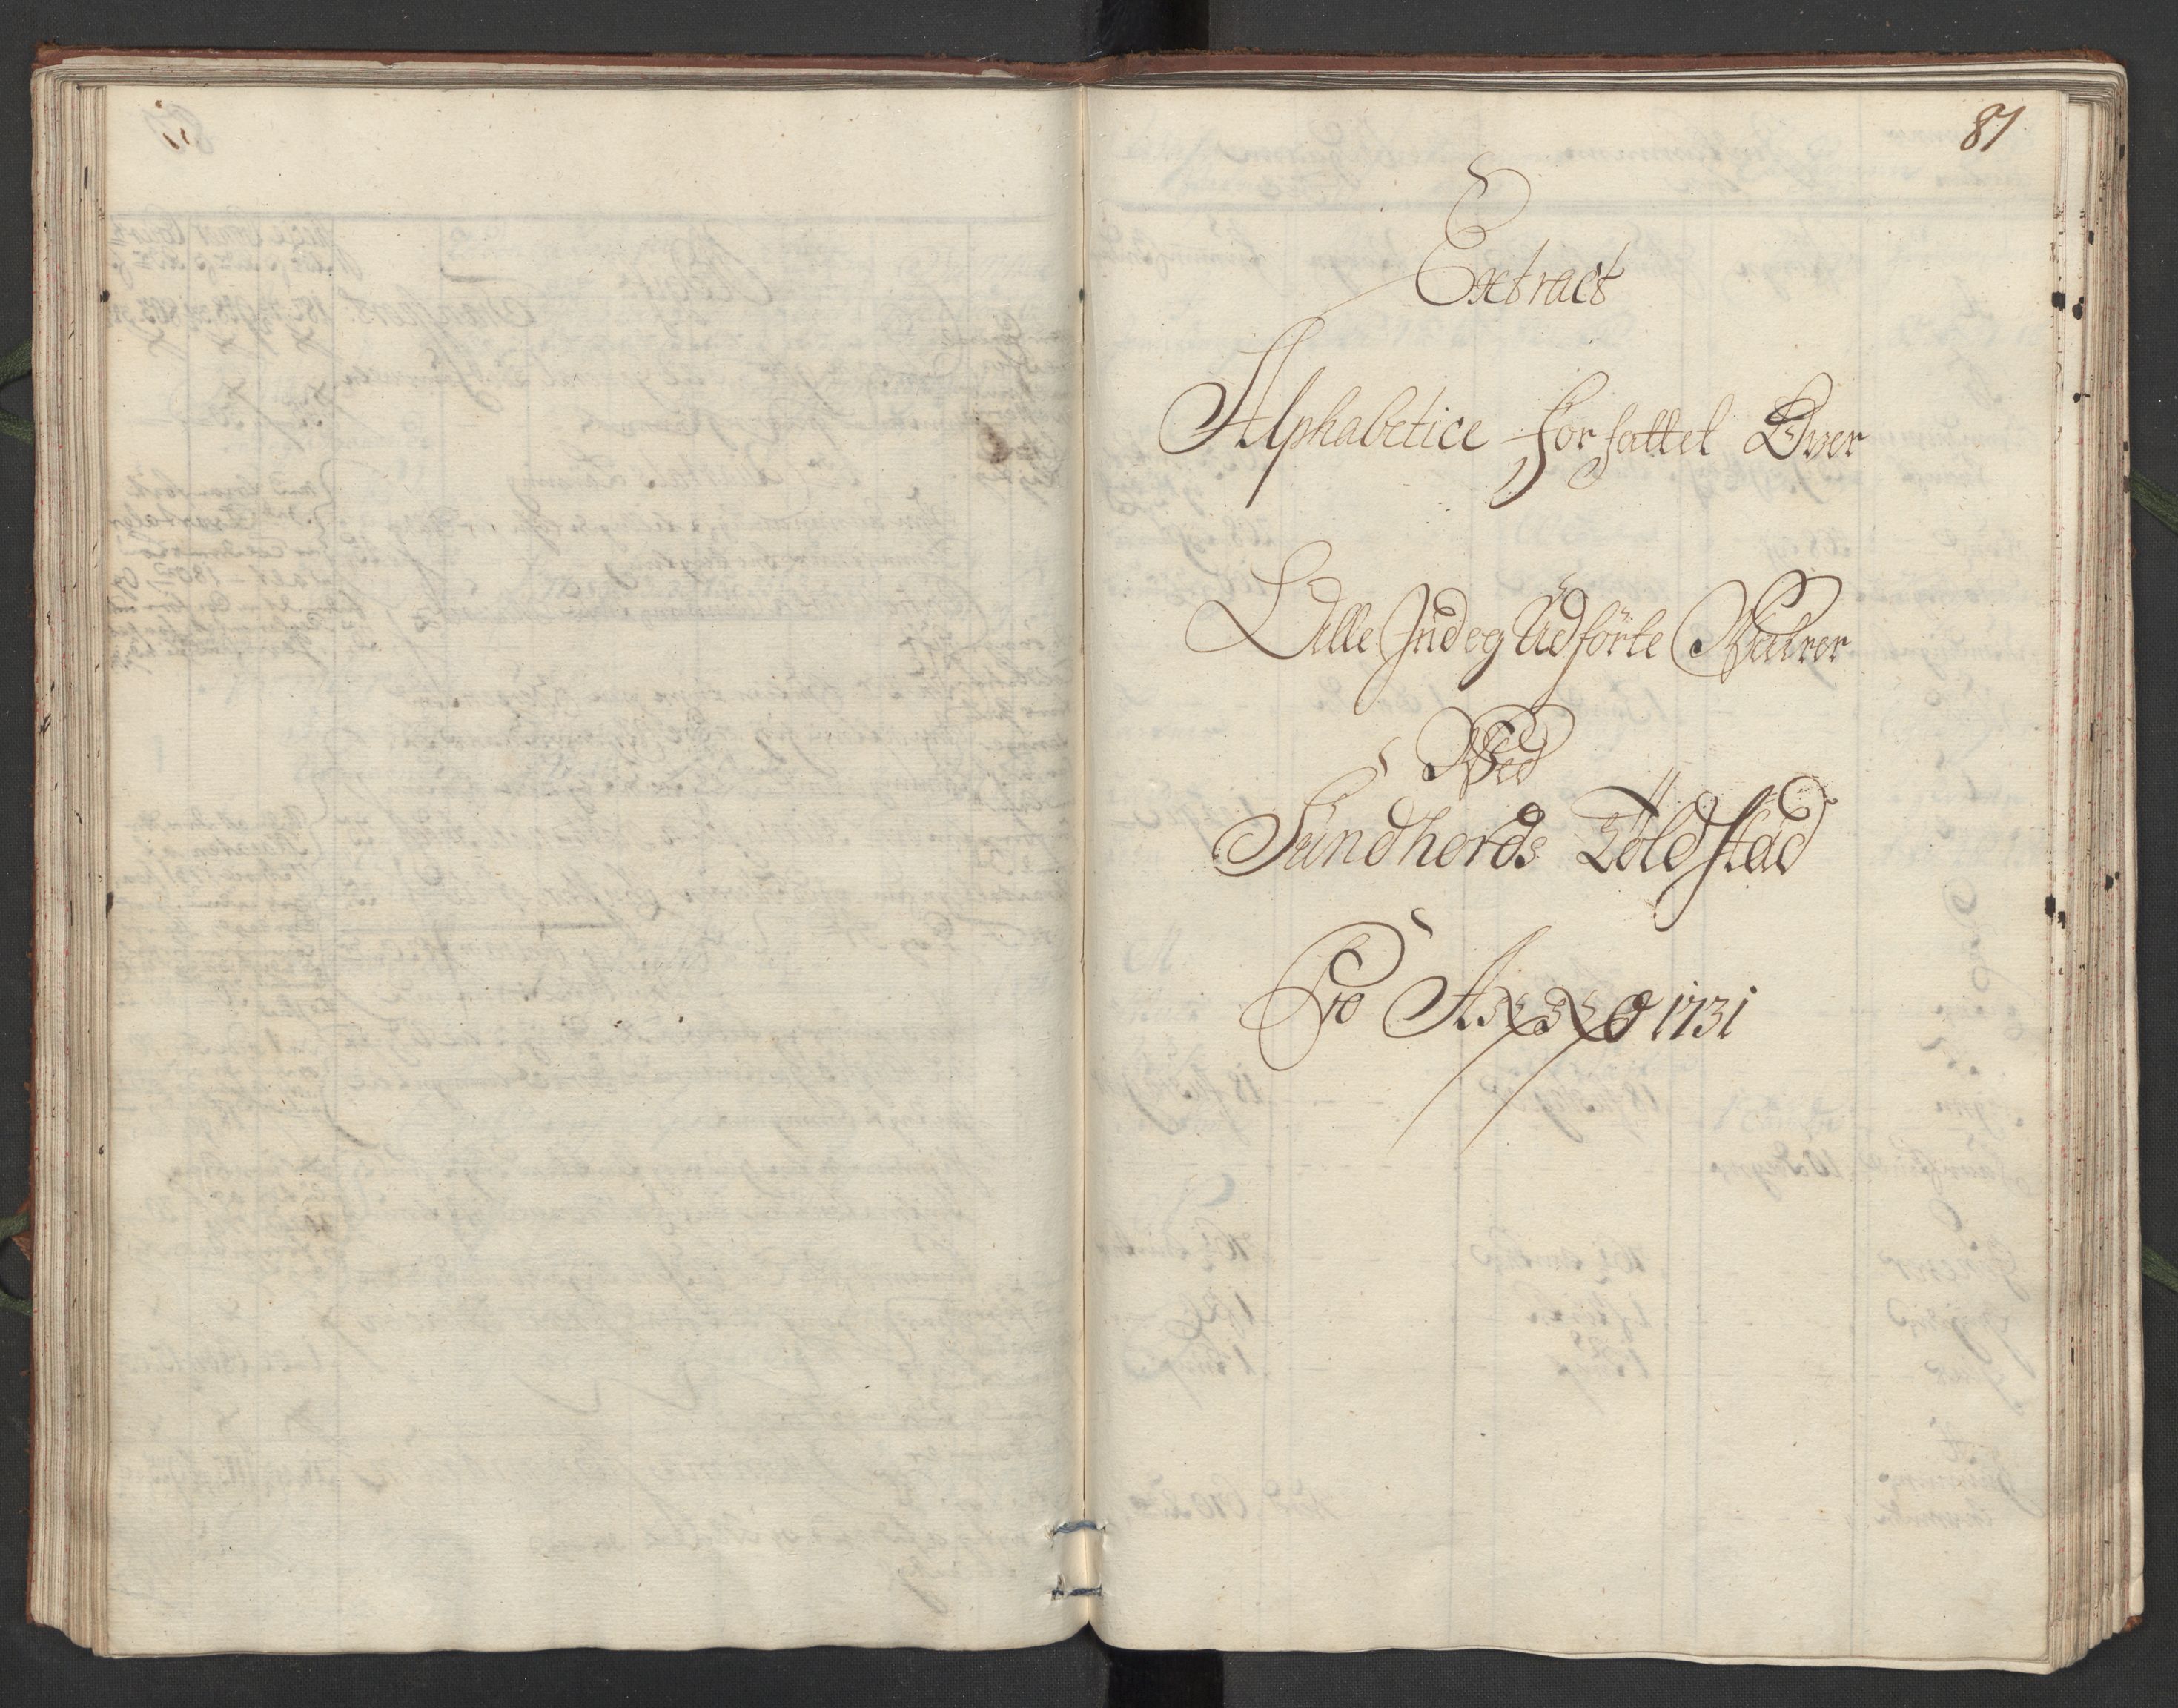 87
Extract
Alphabetice forfattet Over
Alle Ind og Udförte Wahrer
Wed
Sundhords Told Stæd
Pro Anno 1731